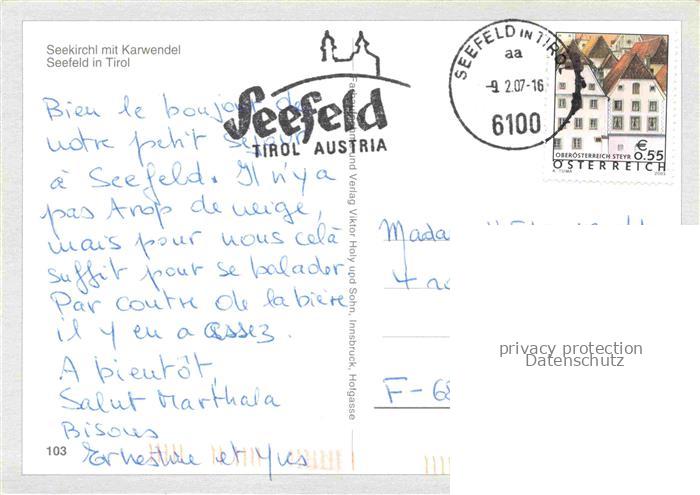 Seekirchl mit Karwendel
Seefeld in Tirol
Bien le bonjour de
notre petit séjour
à Seefeld. Il n'y a
pas trop de neige,
mais pour nous celà
suffit pour se balader
Par contre de la bière
il y en a assez.
A bientôt,
Salut Marthala
Bisous
Ernestine et Yves
103
Seefeld
TIROL AUSTRIA
und Verlag Viktor Holy und Sohn, Innsbruck, Hofgasse
SEEFELD IN TIROL
aa
-9. 2.07-16
6100
OBERÖSTERREICH STEYR
€ 0.55
A. TUMA 2003
ÖSTERREICH
F-68
privacy protection
Datenschutz